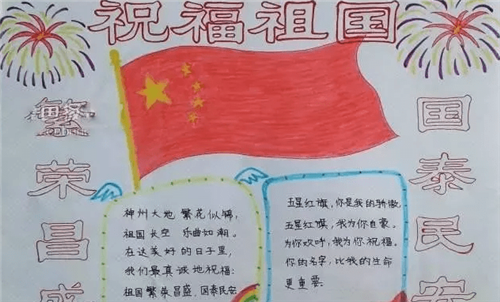 祝福祖国
繁荣昌盛
国泰民安
神州大地 繁花似锦,
祖国长空 乐曲如潮。
在这美好的日子里,
我们最真诚地祝福:
祖国繁荣昌盛,国泰民安
五星红旗,你是我的骄傲,
五星红旗,我为你自豪。
为你欢呼,我为你祝福。
你的名字,比我的生命
更重要。